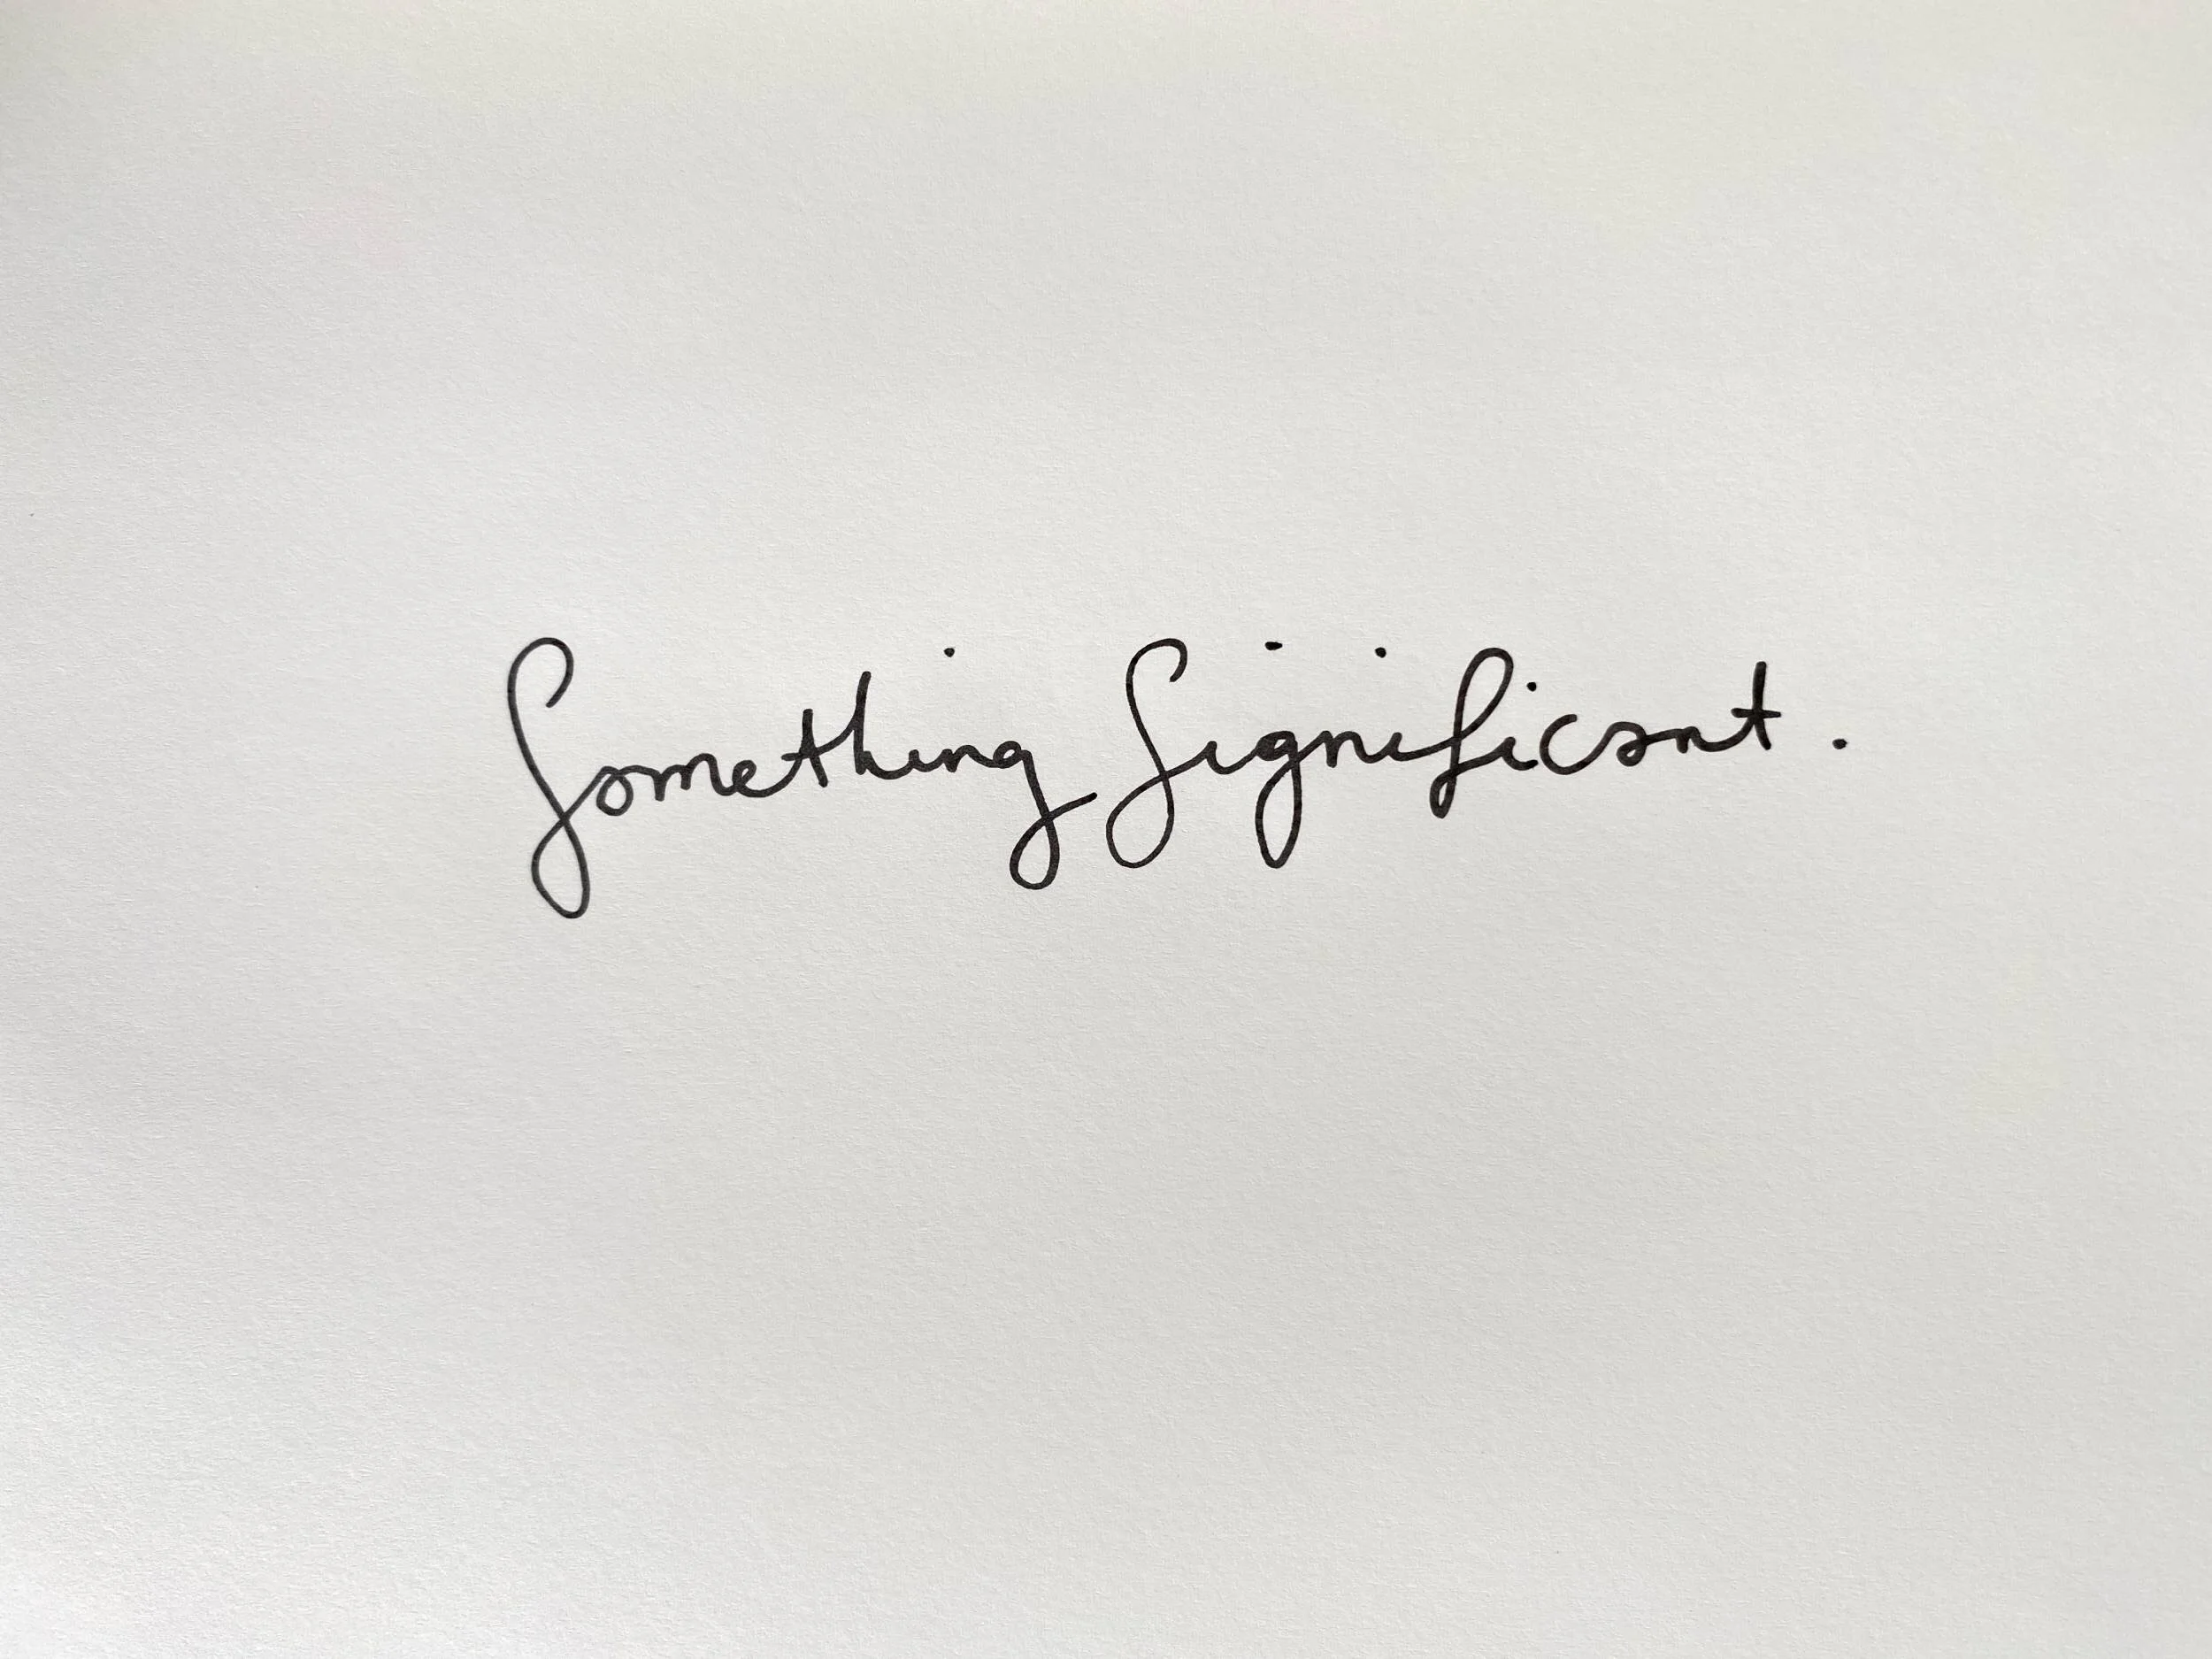 Something Significant.